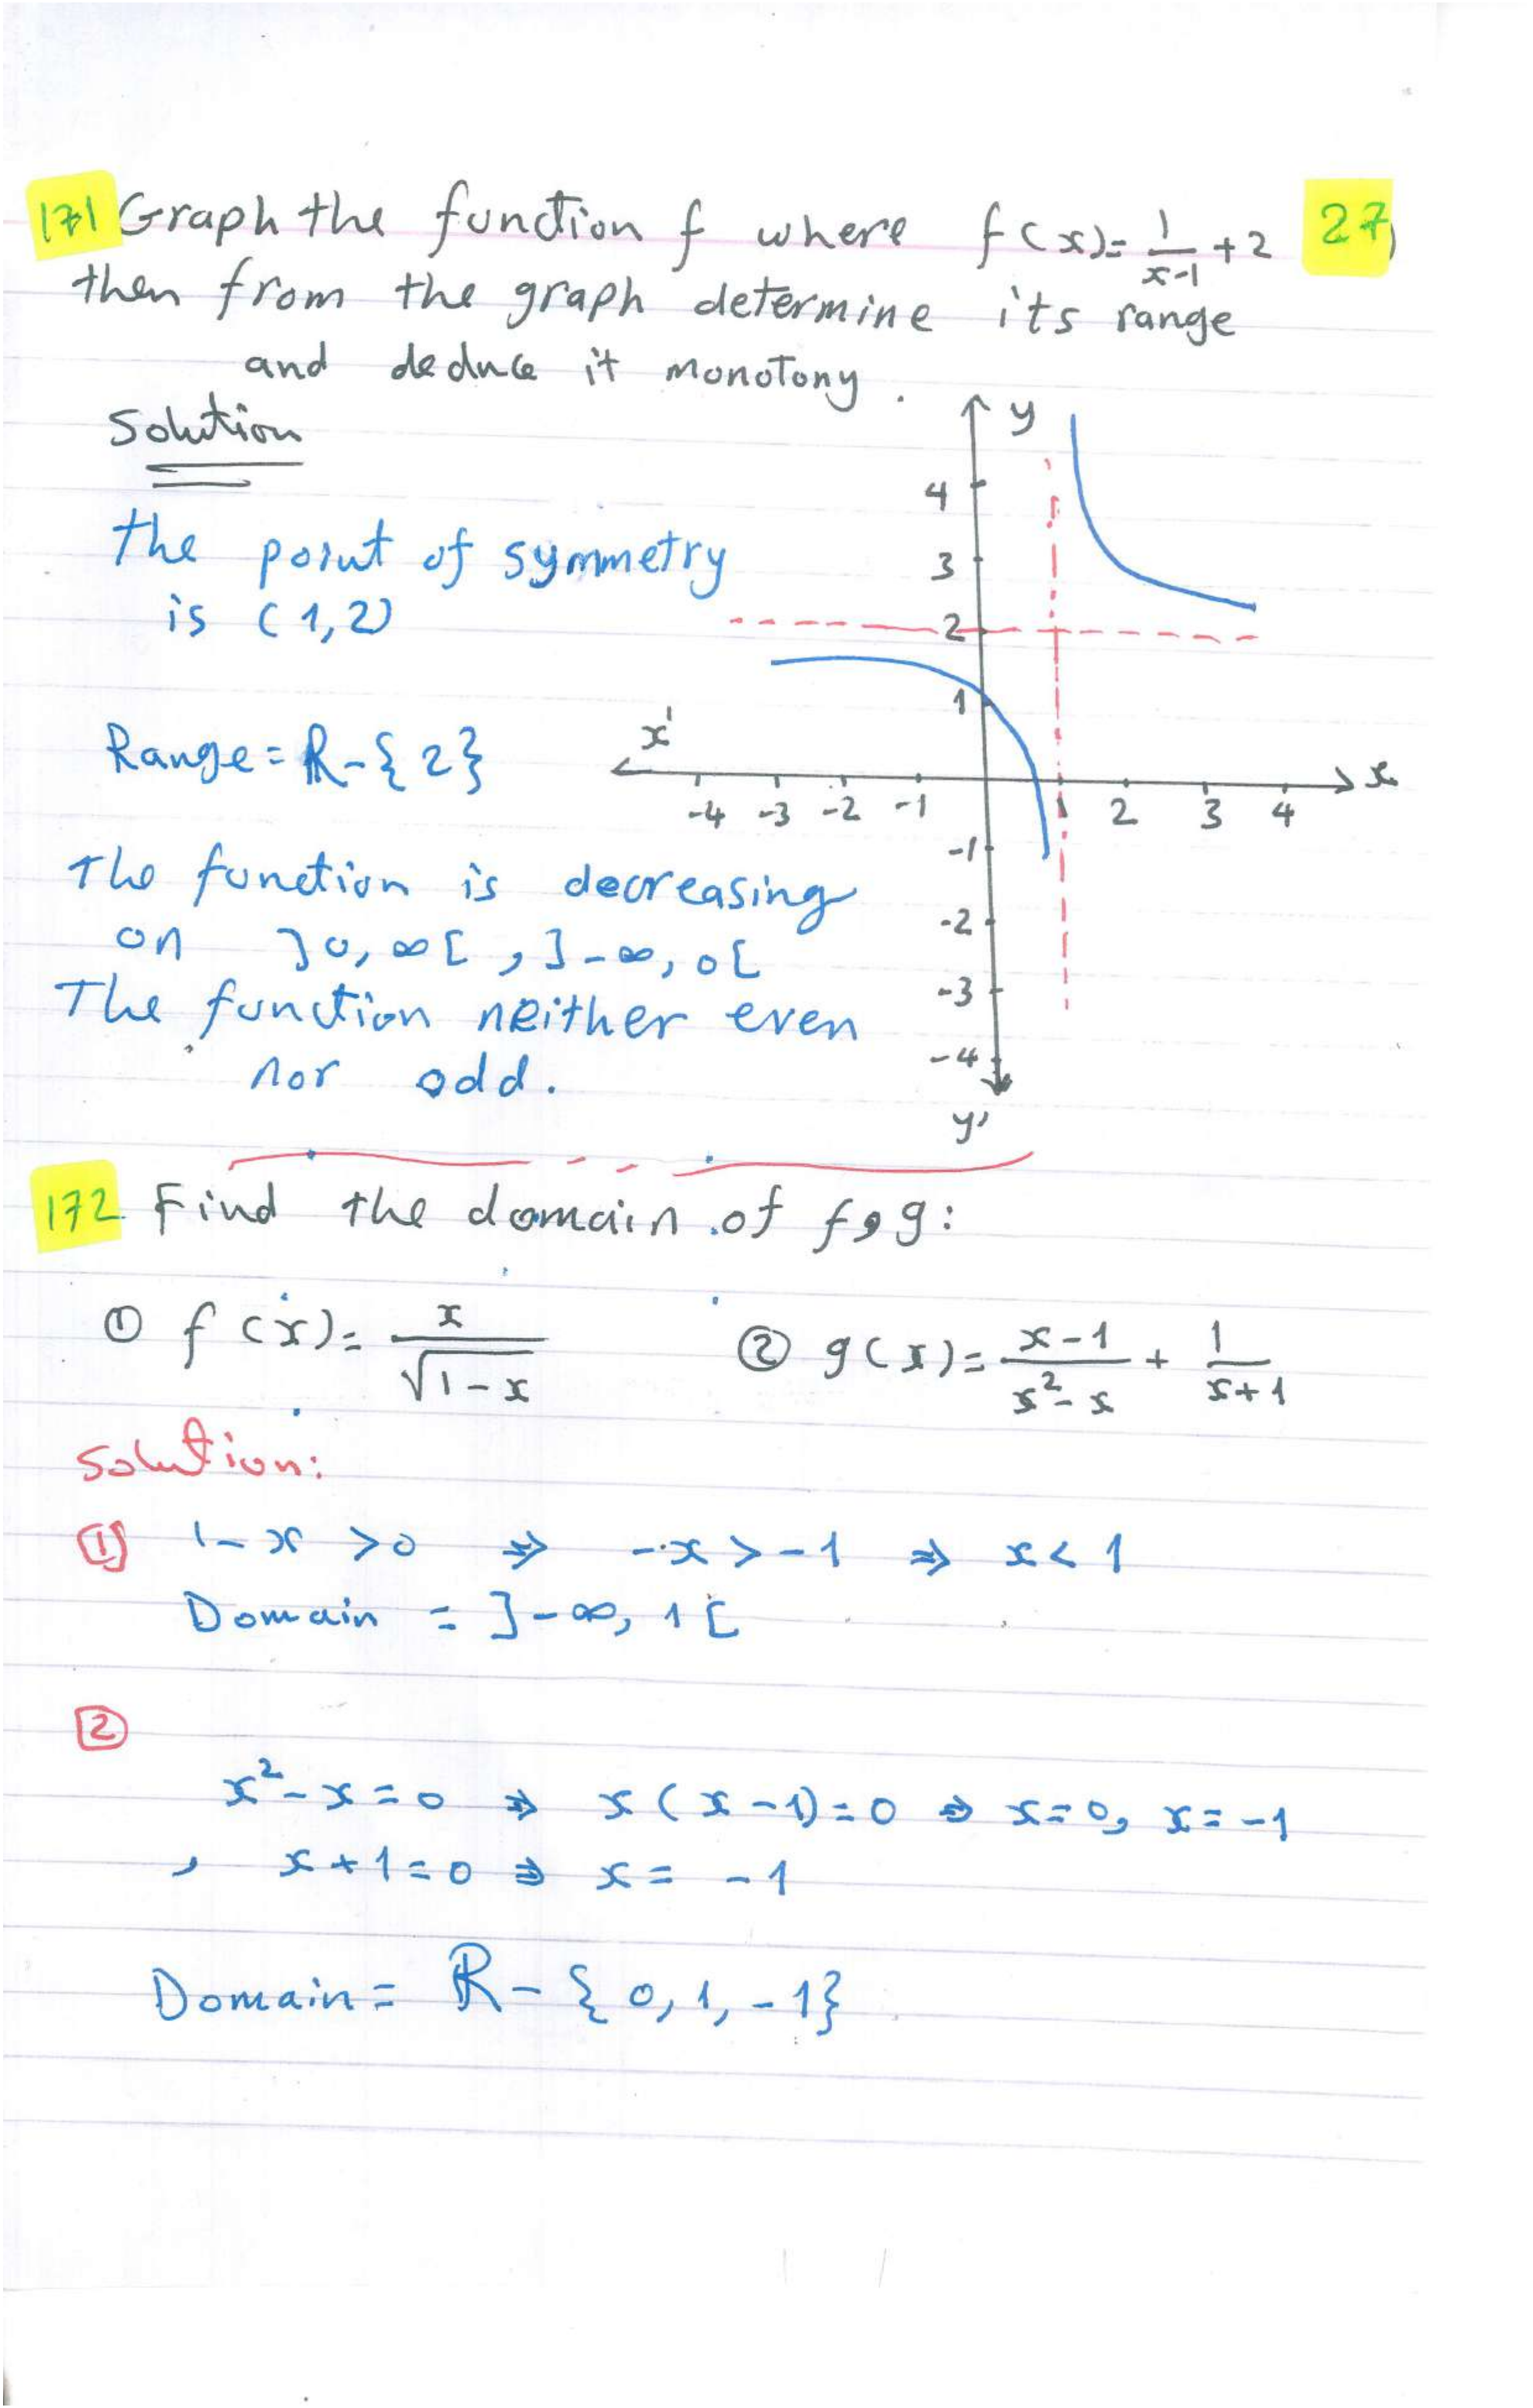 171 Graph the function f where f(x)= 1/(x-1) +2 27
then from the graph determine its range
and deduce it monotony.
Solution
The point of symmetry
is (1,2)
Range = R-{2}
The function is decreasing
on ]0,∞[ , ]-∞,0[
The function neither even
nor odd.
y
4
3
2
1
x' x
-4 -3 -2 -1 1 2 3 4
-1
-2
-3
-4
y'
172 Find the domain of f, g:
① f(x)= x/√(1-x) ② g(x)= (x-1)/(x²-x) + 1/(x+1)
Solution:
① 1-x >0 ⇒ -x>-1 ⇒ x<1
Domain = ]-∞, 1[
②
x²-x=0 ⇒ x(x-1)=0 ⇒ x=0, x=-1
, x+1=0 ⇒ x= -1
Domain= R-{0,1,-1}